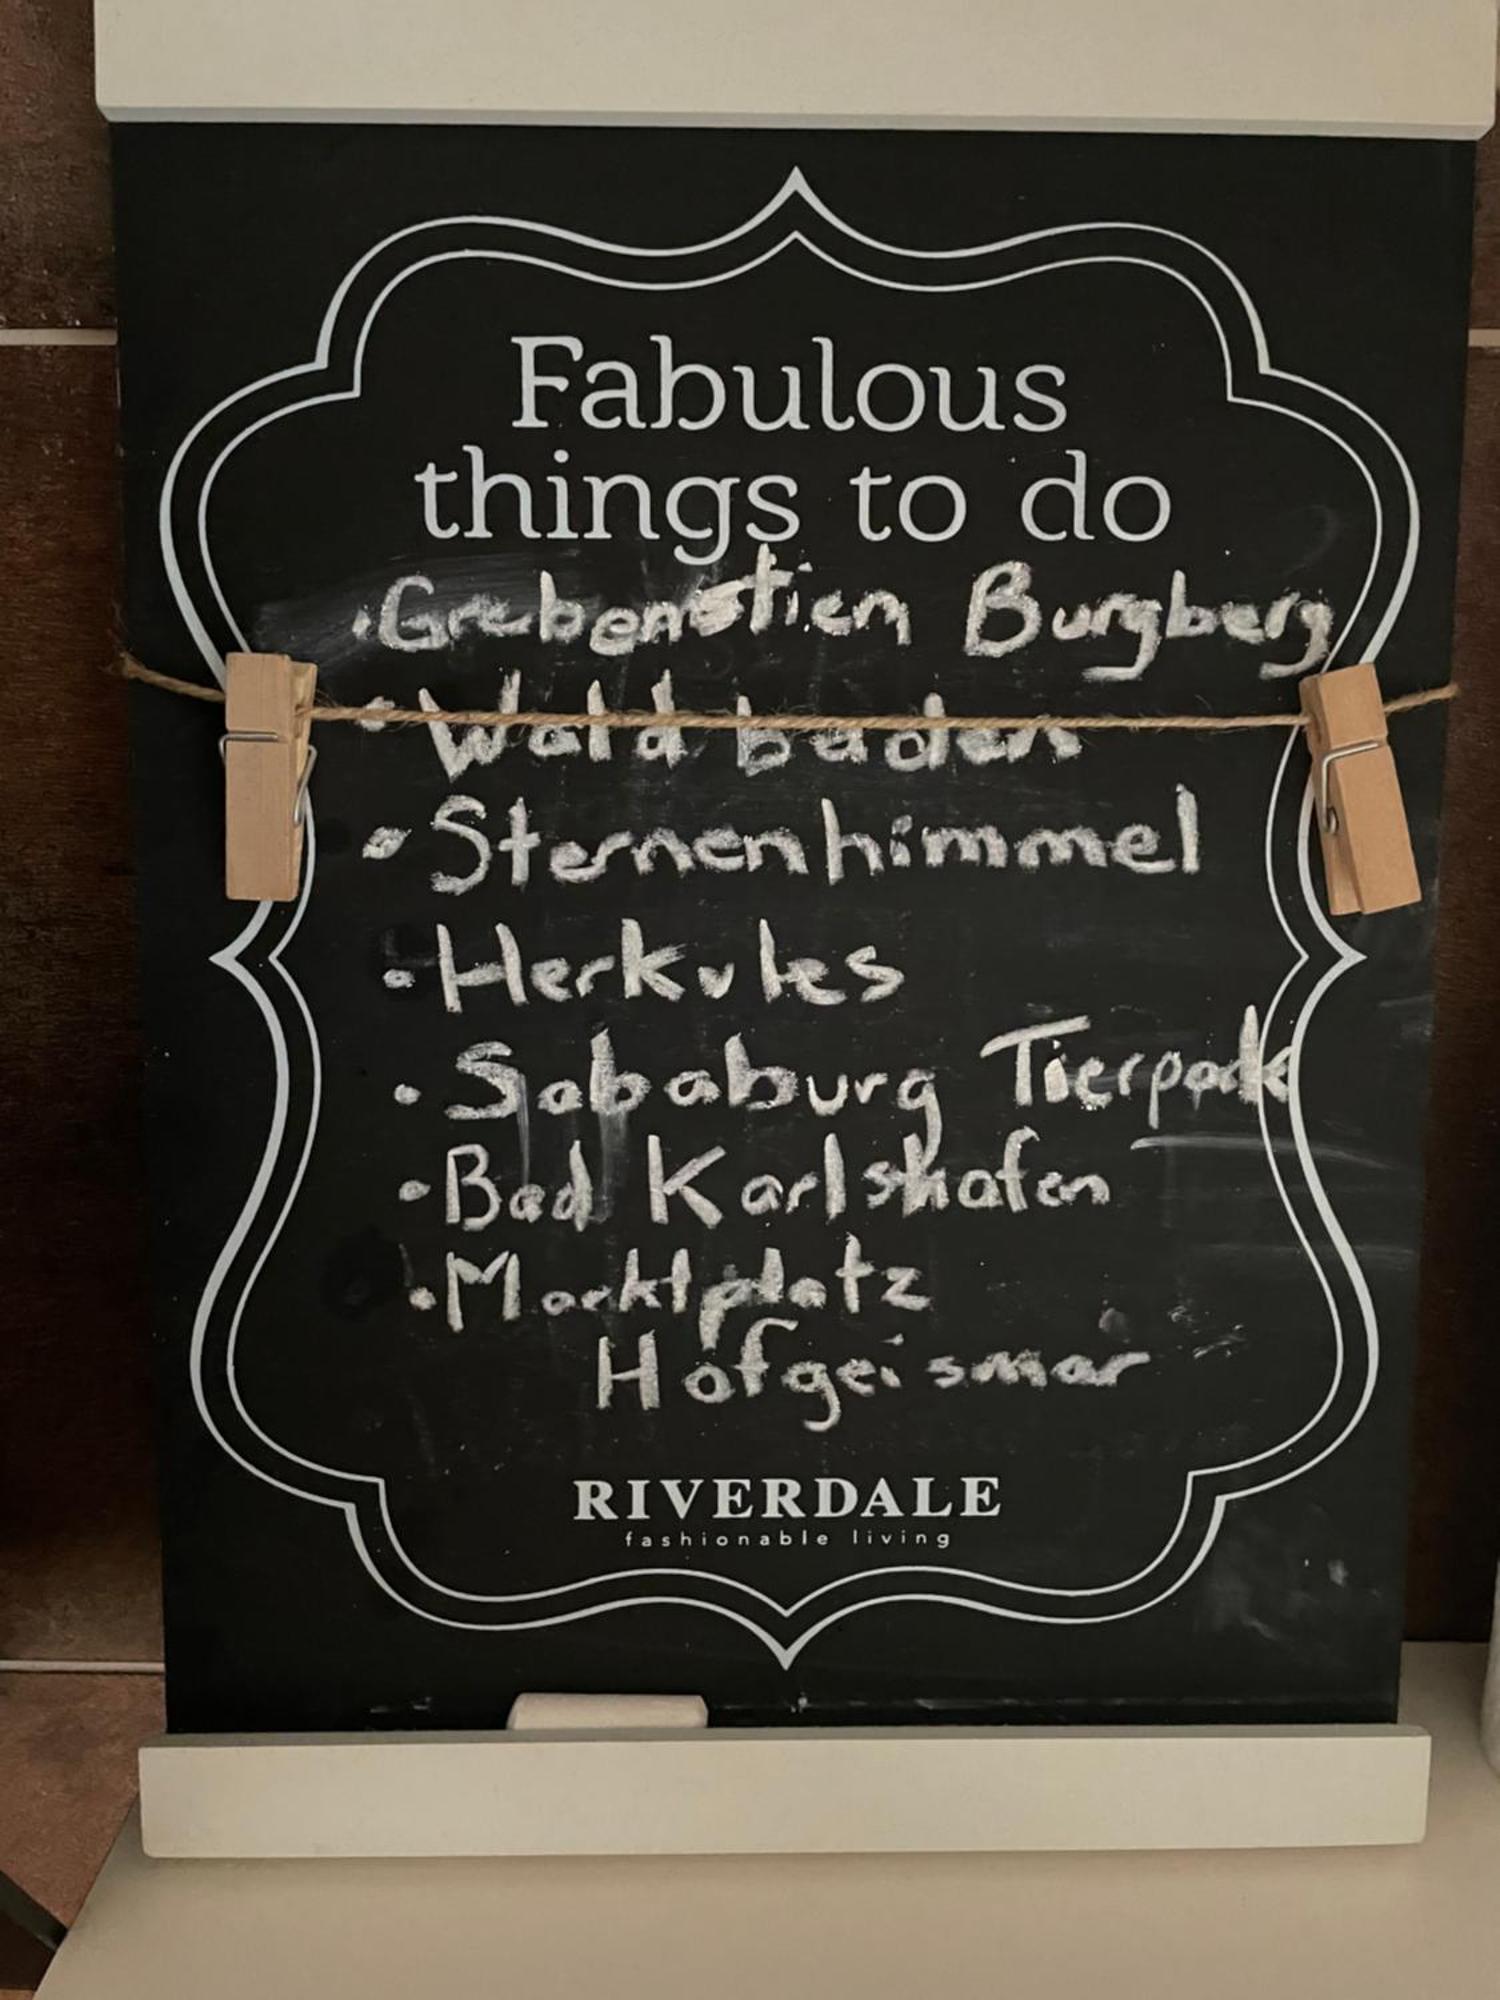 Fabulous
things to do
• Grebenstien Burgberg
• Wald baden
• Sternenhimmel
• Herkules
• Sababurg Tierpark
• Bad Karlshafen
• Marktplatz
Hofgeismar
RIVERDALE
fashionable living